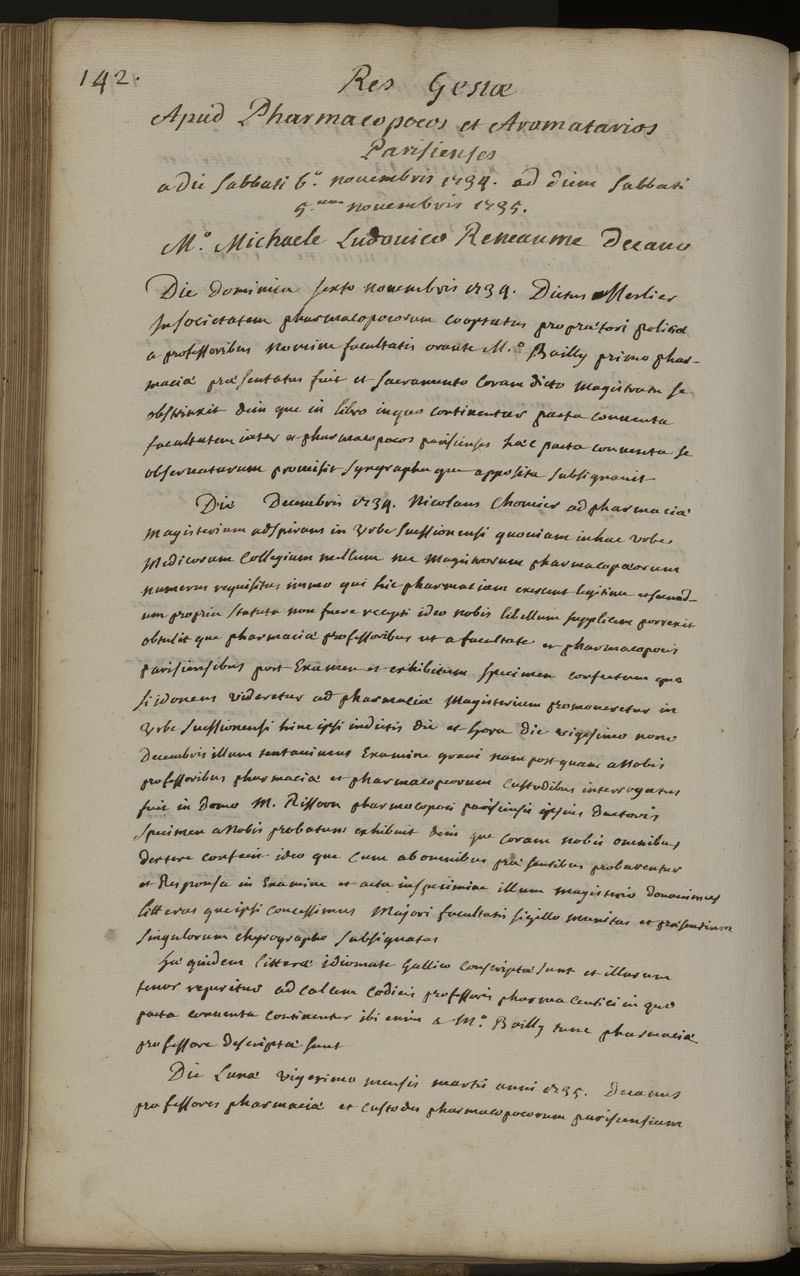 142.
Res Gestæ
Apud Pharmacopoeos et Aromatarios
Parisienses
a die Sabbati 6.ª novembris 1734. ad diem Sabbati
5.um novembris 1735.
M.º Michaele Ludovico Reneaume Decano
Die dominica sexto novembris 1734. Dictus Merlier
in societatem pharmacopoeorum cooptatus proprætori politiæ
a professoribus nomine facultatis orante M.º Bailly primo phar-
maciæ præsentatus fuit et sacramento coram dicto magistratu se
obstrinxit dein que in libro in quo continentur pacta conventa
facultatem inter et pharmacopoeos parisienses hæc pacta conventa se
observaturum promisit syngrapha que apposita subsignavit
Die Decembris 1734. Nicolaus Chomier ad pharmaciæ
magisterium adspirans in Urbe Suessionensi quoniam in hac Urbe
Medicorum Collegium nullum nec magistrorum pharmacopoeorum
numerus requisitus immo qui hic pharmaciam exercent legitime secund-
um propria statuta non fuere recepti ideo nobis libellum supplicem porrexit
obtulit que pharmaciæ professoribus ut a facultate et pharmacopoeis
parisiensibus post Examen et exhibitum specimen confectum que
si idoneus videretur ad pharmaciæ Magisterium promoveretur in
Urbe Suessionensi hinc ipsi indictis die et hora die vigesimo nono
Decembris illum tentavimus Examine gravi nam postquam a Nobis
professoribus pharmaciæ et pharmacopoeorum Custodibus interrogatus
fuit in domo M. Risson pharmacopoei parisiensis ipsius ductoris
specimen a Nobis probatum exhibuit dein que coram nobis omnibus
dextere confecit ideo que cum ab omnibus præsentibus probarentur
et Responsa in Examine et acta in specimine illum magisterio donavimus
litteras que ipsi concessimus Majori facultatis sigillo munitas et præsentium
singulorum chyrographo subsignatas
Hæ quidem litteræ idiomate Gallico conscriptæ sunt et illarum
tenor reperitur ad calcem Codicis professoris pharmaceutici in quo
pacta conventa continentur ibi enim a M.º Bailly tunc pharmaciæ
professore descriptæ sunt
Die Lunæ vigesimo mensis martii anni 1735. Decanus
professores pharmaciæ et custodes pharmacopoeorum parisiensium